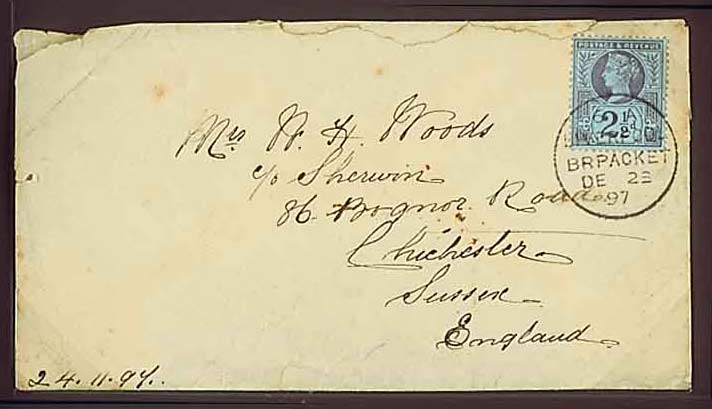 POSTAGE & REVENUE
2½d
BR PACKET
DE 23
97
Mrs W. H. Woods
c/o Sherwin
86 Bognor Road
Chichester
Sussex
England
24.11.97.